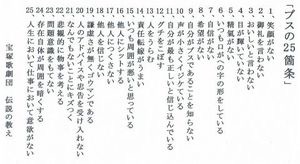 「ブスの25箇条」
1 笑顔がない
2 お礼を言わない
3 おいしいと言わない
4 目が輝いていない
5 精気がない
6 いつも口がへの字の形をしている
7 自信がない
8 希望がない
9 自分がブスであることを知らない
10 声が小さくイジケている
11 自分が最も正しいと信じ込んでいる
12 グチをこぼす
13 他人をうらむ
14 責任転嫁がうまい
15 いつも周囲が悪いと思っている
16 他人にシットする
17 他人につくさない
18 他人を信じない
19 謙虚さがなくゴウマンである
20 人のアドバイスや忠告を受け入れない
21 なんでもないことにキズつく
22 悲観的に物事を考える
23 問題意識をもてない
24 存在自体が周囲を暗くする
25 人生においても仕事においても意欲がない
宝塚歌劇団 伝説の教え